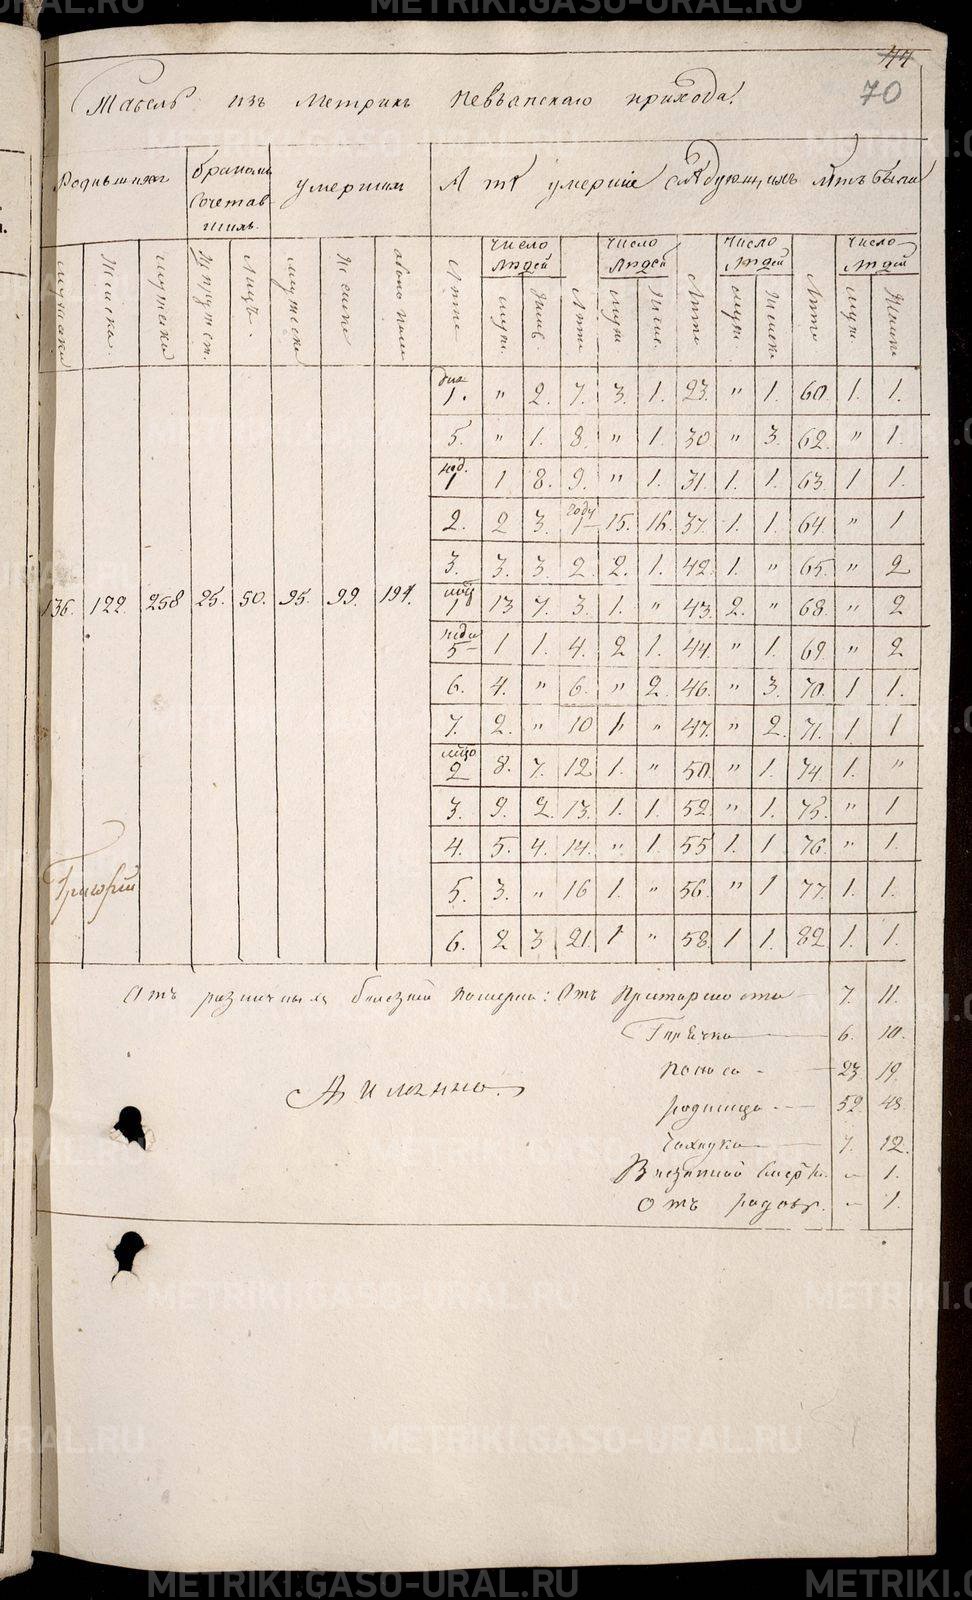 44
70
Табель изъ метрикъ Невьянскаго прихода.
Родившихся
браками
сочетав
шихъ.
умершихъ
А тѣ умершіе слѣдующихъ лѣтъ были
число людей число людей число людей число людей
мужска Женска мужска Супружст. Лицъ. мужска Женска обоего пола Лѣта муж. Женс. Лѣта муж. Женс. Лѣта муж. Женск Лѣта муж. Женск
дня 1. " 2. 7. 3. 1. 23. " 1. 60. 1. 1.
5. " 1. 8. " 1. 30 " 3. 62. " 1.
нед. 1 1 8. 9. " 1. 31. 1. 1. 63. 1 1.
2. 2 3. году 1 15. 16. 37. 1. 1. 64 " 1
3. 3. 3. 2. 2. 1. 42. 1. " 65. " 2
136. 122. 258 25. 50. 95. 99. 194.
1 13 7. 3. 1. " 43. 2. " 68. " 2
неде 5 1 1. 4. 2 1. 44. " 1. 69. " 2
6. 4. " 6. " 2. 46. " 3. 70. 1 1.
7. 2. " 10 1 " 47. " 2. 71. 1 1
2 8. 7. 12 1. " 50. " 1. 74 1. "
3. 9. 2. 13. 1. 1. 52. " 1. 75. " 1
4. 5. 4. 14. " 1. 55 1. 1 76. " 1.
5. 3. " 16 1. " 56. " 1 77. 1. 1.
6. 2 3 21. 1 " 58. 1 1. 82 1. 1.
Григорій
Отъ различныхъ болезней померло: Отъ 7. 11.
Горячка 6. 10.
Поноса 23 19.
родимца 52. 48.
Чахотка 7. 12.
Внезапной смерти. " 1.
Отъ родовъ. " 1.
METRIKI.GASO-URAL.RU